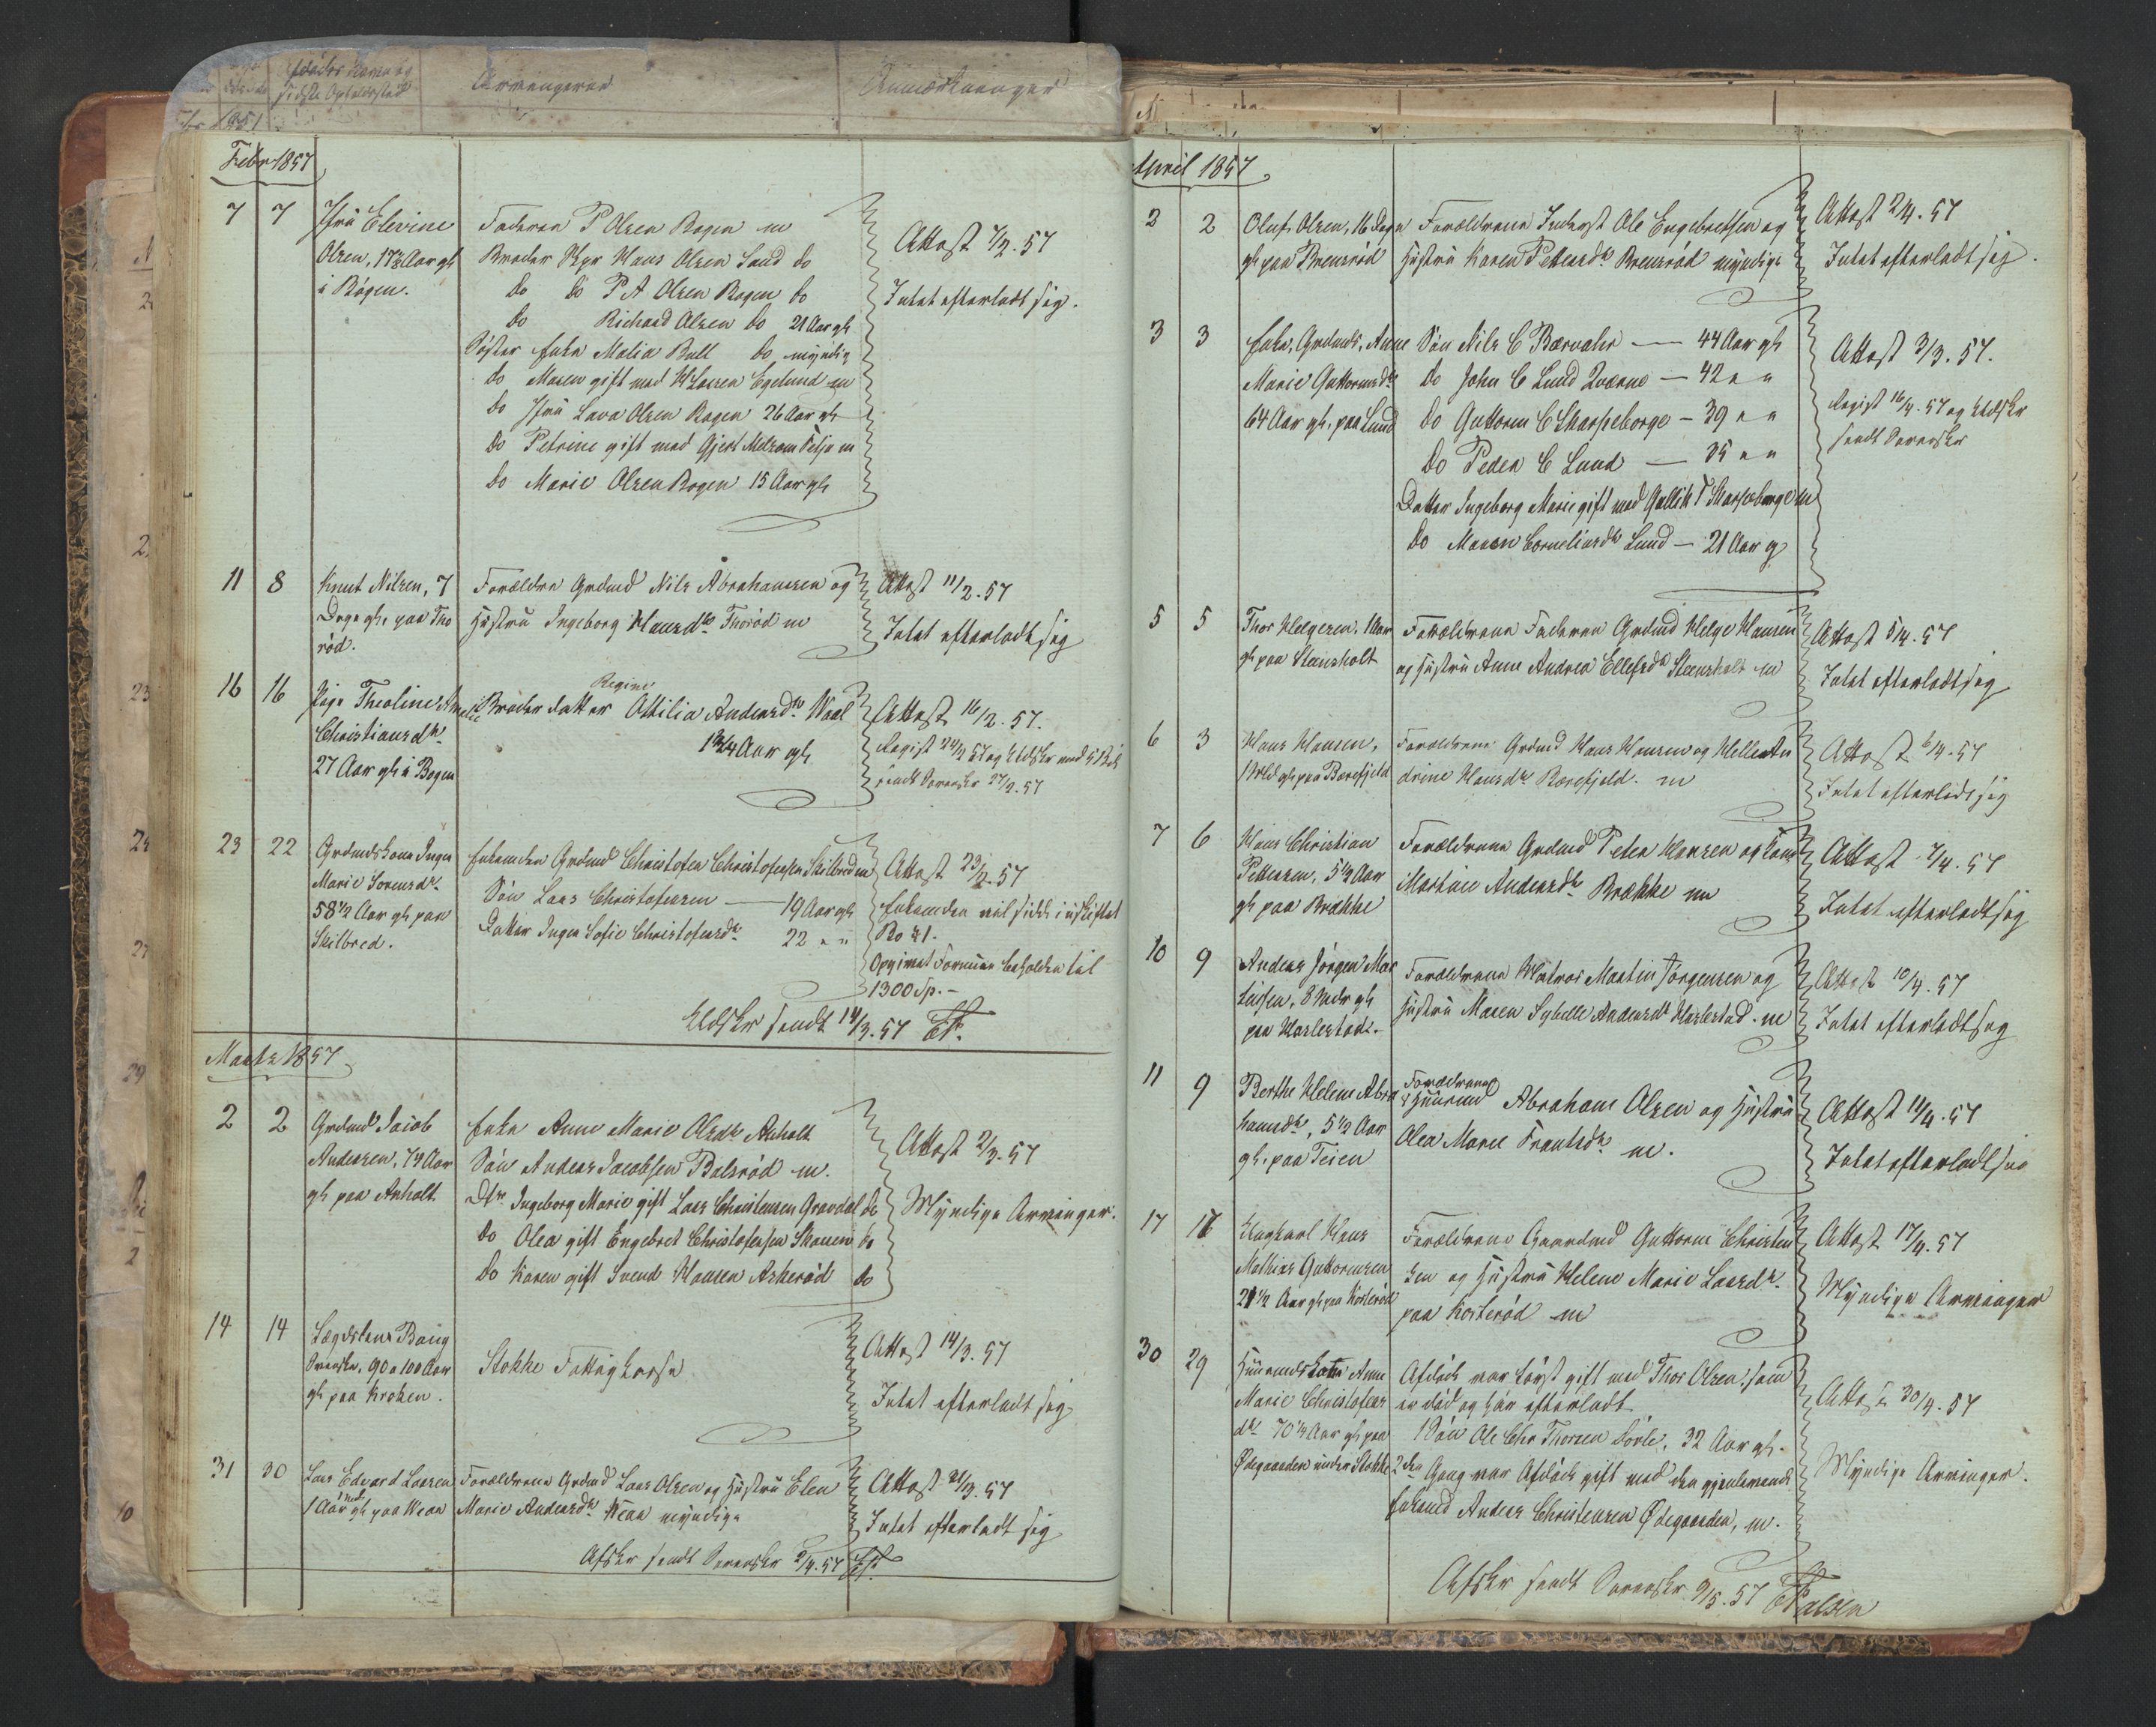 Afdødes Navn og
sidste Opholdssted
Arvingerne
Anmærkninger
Febr 1857
7 7 Jfru Elevine
Olsen, 17¾ Aar gl
i Bogen.
Faderen P Olsen Bogen m
Broder Skpr Hans Olsen Lund do
do do P A Olsen Bogen do
do Richard Olsen do 21 Aar gl
Søster Enke Malia Bull do myndig
do Maren gift med H Larsen Egelund m
do Jfru Lava Olsen Bogen 26 Aar gl
do Petrine gift med Gjert Melsom m
do Marie Olsen Bogen 15 Aar gl
Attest 7/2. 57
Intet efterladt sig.
11 8 Knut Nilsen, 7
Dage gl. paa Tho
rød.
Forældre Grdmd Nils Abrahamsen og
Hustru Ingeborg Hansdtr Thorød m
Attest 11/2. 57
Intet efterladt sig
16 16 Pige Theoline Amalie
Christiansdtr
27 Aar gl i Bogen
Regine
Broder datter Attilia Andersdtr Waal
1¾ Aar gl
Attest 16/2. 57.
Regist 24/2 57 og Udskr med
sendt Sorenskr 27/2. 57
23 22 Grdmdskone Inger
Marie Sorensdtr
58½ Aar gl paa
Skilbred.
Enkemanden Grdmd Christofer Christofersen Skilbred m
Søn Lars Christofersen — 19 Aar gl
Datter Inger Sofie Christofersdtr 22 " "
Attest 23/2. 57
Enkemanden vil sidde i uskiftet
Bo
Opgivet Formue beholden til
1300 Sp. -
Udskr sendt 14/3. 57 EF.
Marts 1857
2 2 Grdmd Jacob
Andersen, 79 Aar
gl paa Anholt
Enke Anne Marie Olsdtr Anholt
Søn Anders Jacobsen Balsrød m.
Dtr Ingeborg Marie gift Lars Christensen Gravdal do
do Olea gift Engebret Christofersen Skauen do
do Karen gift Svend Hansen Askerød do
Attest 2/3. 57
Myndige Arvinger.
14 14 Lægdslem Borg
Svenske, 90 a 100 Aar
gl paa Kroken.
Stokke Fattigkasse
Attest 14/3. 57
Intet efterladt sig
31 30 Lars Edvard Larsen
1 Aar gl paa Wear
Forældrene Grdmd Lars Olsen og Hustru Elen
Marie Andersdtr Wear myndige
Attest 31/3. 57
Intet efterladt sig
Afskr sendt Sorenskr 2/4. 57 EF.
April 1857
2 2 Oluf Olsen, 16 Dage
gl paa Brensrød
Forældrene Inderst Ole Engebretsen og
Hustru Karen Pettersdtr Brensrød myndige
Attest 2/4. 57
Intet efterladt sig.
3 3 Enke, Grdmds, Anne
Marie Guttormsdtr
64 Aar gl. paa Lund
Søn Nils C Borvahr — 44 Aar gl
do John C Lund Qværne — 42 " "
do Guttorm C Skarpeborge — 39 " "
do Peder C Lund — 35 " "
Datter Ingeborg Marie gift med Gullik T Skarpeborge m
do Maren Corneliusdtr Lund — 21 Aar g
Attest 3/3. 57.
Regist 16/4. 57 og Udskr
sendt Sorenskr
5 5 Thor Helgesen, 1 Aar
gl paa Stensholt
Forældrene Faderen Grdmd Helge Hansen
og Hustru Anne Andrea Ellefsdtr Stensholt m
Attest 5/4. 57
Intet efterladt sig
6 3 Hans Hansen,
gl paa Borefjeld
Forældrene Grdmd Hans Hansen og Hellen An
drine Hansdtr Borefjeld. m
Attest 6/4. 57
Intet efterladt sig
7 6 Hans Christian
Pettersen, 5½ Aar
gl paa Brække
Forældrene Grdmd Peter Hansen og Kone
Mathine Andersdtr Brække m
Attest 7/4. 57
Intet efterladt sig
10 9 Anders Jørgen Mar
tinsen, 8 Mdr gl
paa Harlestad.
Forældrene Matros Martin Jørgensen og
Hustru Maren Sybelle Andersdtr Harlestad. m
Attest 10/4. 57
Intet efterladt sig
11 9 Berthe Helene Abra
hamsdtr, 5½ Aar
gl. paa Teien
Forældrene
Huusmd Abraham Olsen og Hustru
Olea Marie Frantsdtr m.
Attest 11/4. 57
Intet efterladt sig
17 16 Ungkarl Hans
Mathias Guttormsen
21½ Aar gl paa Kosterød
Forældrene Gaardmd Guttorm Christen
sen og Hustru Helene Marie Larsdtr
paa Kosterød m
Attest 17/4. 57
Myndige Arvinger
30 29 Huusmdskone Anne
Marie Christofers
dtr 70½ Aar gl paa
Ødegaarden under Stokke
Afdøde var først gift med Thor Olsen, som
er død og har efterladt
1 Søn Ole Chr Thorsen Sørle, 32 Aar gl.
2den Gang var Afdøde gift med den gjenlevende
Enkemd Anders Christensen Ødegaarden, m.
Attest 30/4. 57
Myndige Arvinger.
Afskr sendt Sorenskr 9/5. 57 EFalsen